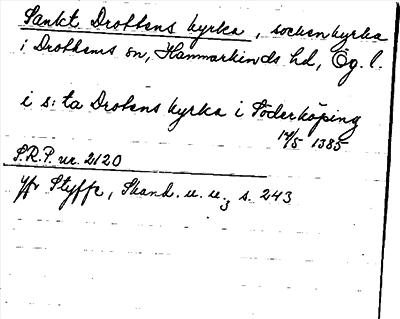 Sankt Drottens kyrka, sockenkyrka
i Drothems sn, Hammarkinds hd, Ög. l.
i s:ta Drotens kyrka i Söderköping
14/5 1385
S.R.P. nr. 2120
jfr Styffe, Skand. u. u.3 s. 243